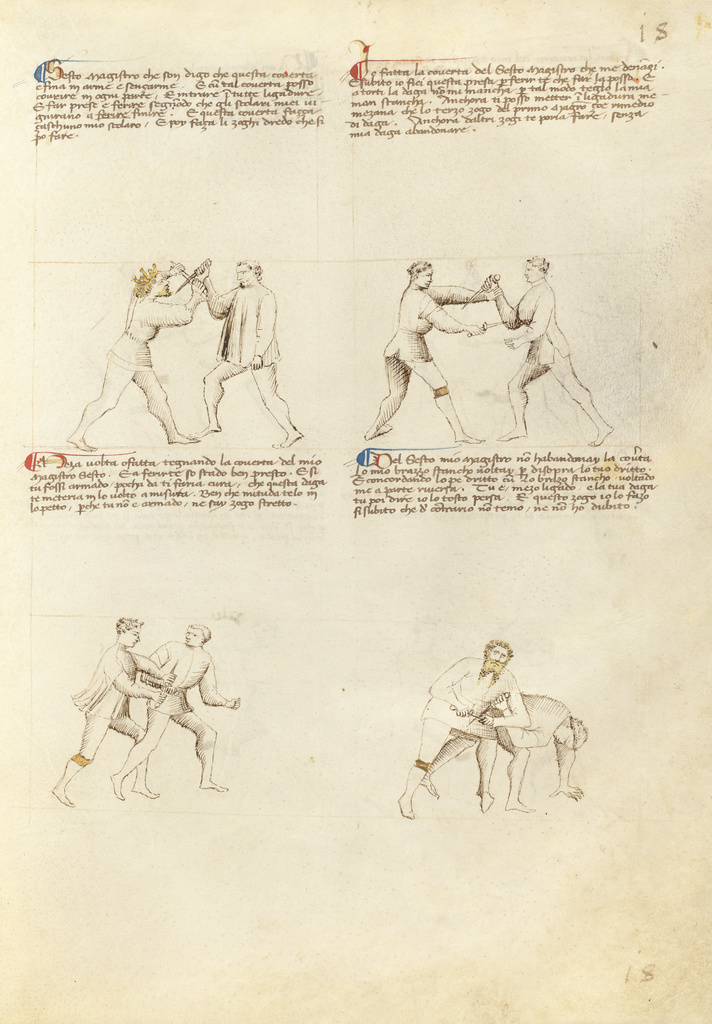 18
Sesto Magistro che son digo che questa coverta
e fina in arme e senç'arme. E cun tal coverta posso
covrire in ogni parte, E intrare in tutte ligadure
E far prese e ferire segondo che gli scolari miei vi-
gnirano a ferire finire. E questa coverta faza
caschuno mio scolaro, E poy faza li zoghi dredo che si
po fare.
Io fatta la coverta del Sesto Magistro che me denançi.
E subito io fici questa presa per ferir te che far lo posso. E
a torti la daga non mi mancha per tal modo tegno la mia
man stancha. Anchora ti posso metter in ligadura me-
zana che lo terzo zogo del primo Magistro che remedio
di daga. Anchora d'altri zogi te poria fare, senza
mia daga abandonare.
Meza volta o fatta tegnando la coverta del mio
Magistro Sesto. E a ferirte so stado ben presto. E si
tu fossi armado pocha da ti faria cura, che questa daga
te meteria in lo volto a misura. Ben che mituda te lo in
lo petto, perche tu non e armado, ne say zogo stretto.
Del Sesto mio Magistro non habandonai la coverta
lo mio brazzo stancho voltay per disopra lo tuo dritto.
E concordando lo pe dritto cum lo brazo stancho, voltado
me a parte riversa. Tu e mezo ligado, e la tua daga
tu poi dire io lo tosto persa. E questo zogo io lo fazo
si subito che del contrario non temo, ne non ho dubito.
18